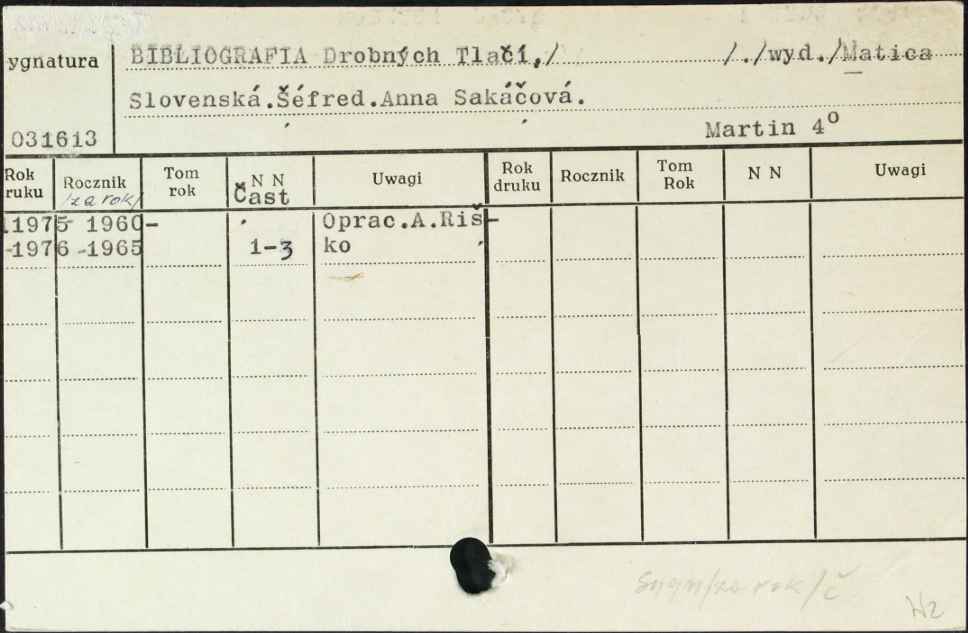 ygnatura BIBLIOGRAFIA Drobných Tlačí,/ /./wyd./Matica
Slovenská.Šéfred.Anna Sakáčová.
031613 Martin 4º
Rok ruku Rocznik /za rok/ Tom rok N N Čast Uwagi Rok druku Rocznik Tom Rok N N Uwagi
1975 1960- Oprac.A.Riš-
-1976 -1965 1-3 ko